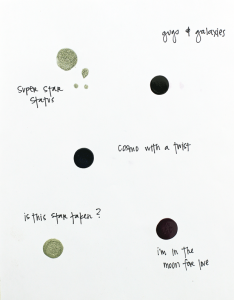 gugs & galaxies
super star
status
cosmo with a twist
is this star taken?
i'm in the
moon for love